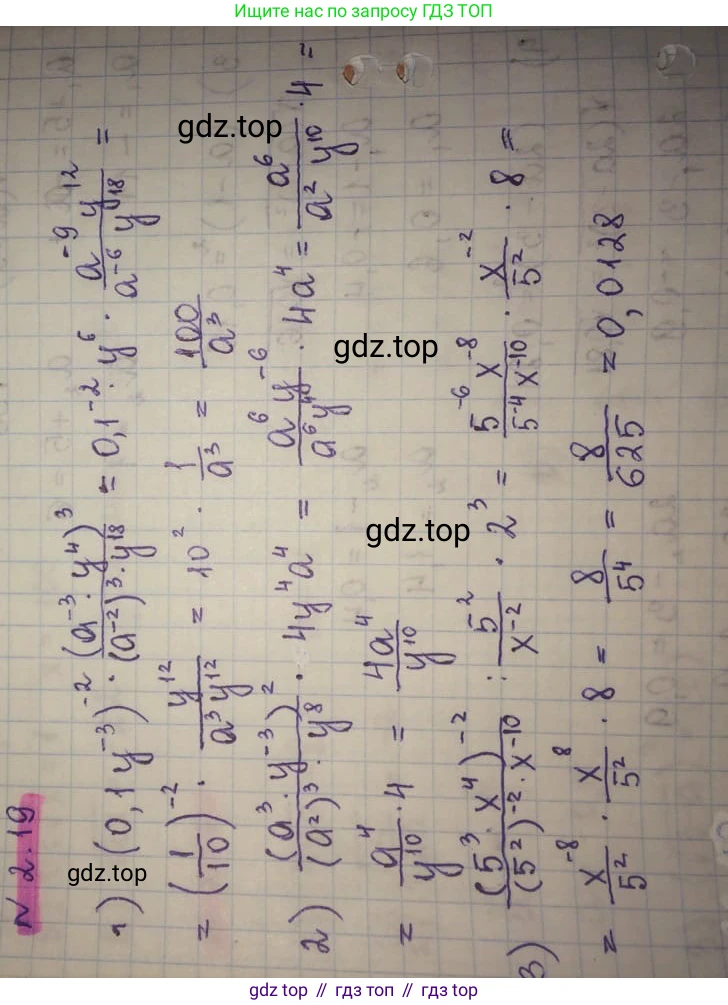 Ищите нас по запросу ГДЗ ТОП
N 2.19
1) (0,1y⁻³)⁻² · (a⁻³ · y⁴)³ / (a⁻²)³ · y¹⁸ = 0,1⁻² · y⁶ · a⁻⁹ y¹² / a⁻⁶ y¹⁸ =
= (1/10)⁻² · y¹² / a³ y¹² = 10² · 1/a³ = 100/a³
2) (a³ · y⁻³)² / (a²)³ · y⁸ · 4y⁴a⁴ = a⁶ y⁻⁶ / a⁶ y⁴ · 4a⁴ = a⁶ / a² y¹⁰ · 4 =
= a⁴/y¹⁰ · 4 = 4a⁴/y¹⁰
3) (5³ · x⁴)⁻² / (5²)⁻² · x⁻¹⁰ : 5²/x⁻² · 2³ = 5⁻⁶ x⁻⁸ / 5⁻⁴ x⁻¹⁰ · x⁻²/5² · 8 =
= x⁻⁸/5² · x⁸/5² · 8 = 8/5⁴ = 8/625 = 0,0128
gdz.top
gdz.top
gdz.top
gdz.top
gdz.top // гдз.топ // gdz.top // гдз.топ